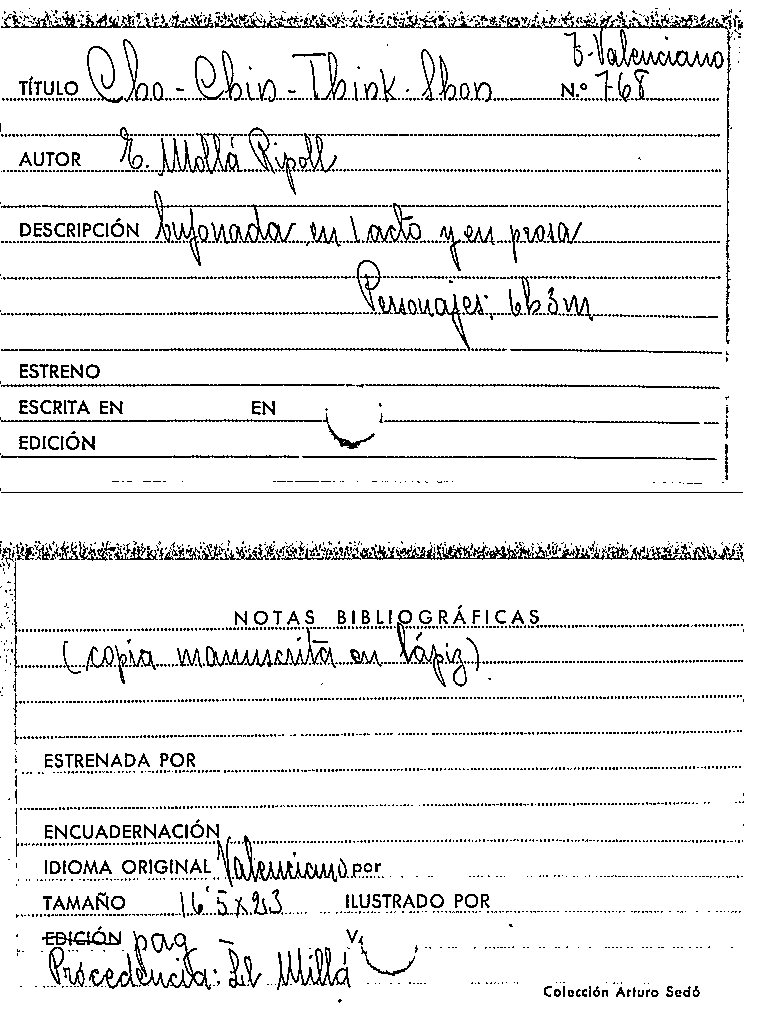 T-Valenciano
TÍTULO Cho-Chin-Think-Shon N.º 768
AUTOR E. Mollá Ripoll
DESCRIPCIÓN bufonada en 1 acto y en prosa
Personajes: 6h3m
ESTRENO
ESCRITA EN EN
EDICIÓN
NOTAS BIBLIOGRÁFICAS
(copia manuscrita en lápiz).
ESTRENADA POR
ENCUADERNACIÓN
IDIOMA ORIGINAL Valenciano por
TAMAÑO 16'5x23 ILUSTRADO POR
EDICIÓN pag - V.
Procedencia: Millá
Colección Arturo Sedó